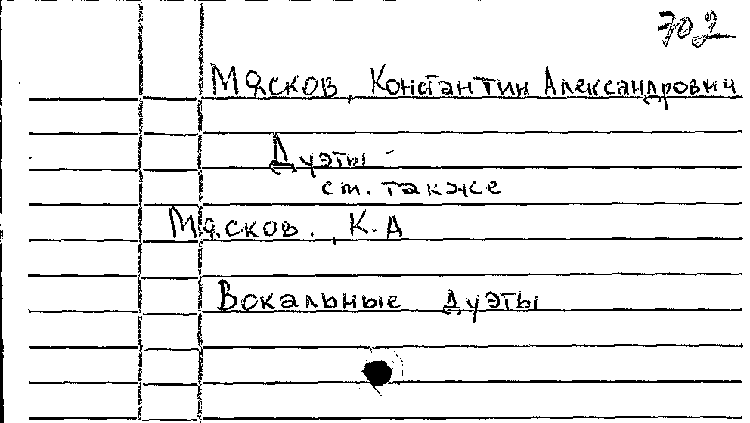 702
Мясков, Константин Александрович
Дуэты -
см. также
Мясков., К.А
Вокальные дуэты